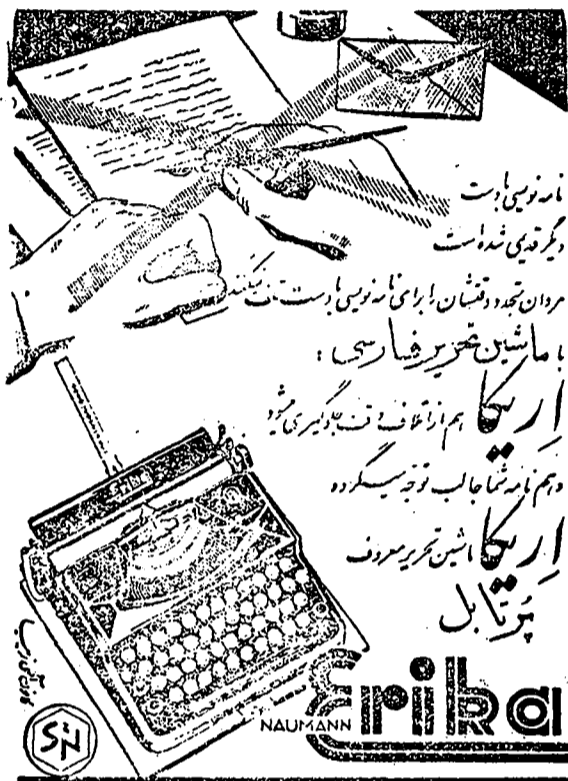 نامه نویسی با دست
دیگر قدیمی شده است
مردان تجدد وقتشان را برای نامه نویسی با دست تلف نمیکنند
با ماشین تحریر فارسی :
اریکا هم از اتلاف وقت جلوگیری میشود
و هم نامه شما جالب توجه میگردد
اریکا ماشین تحریر معروف
پرتابل
NAUMANN Erika
SN